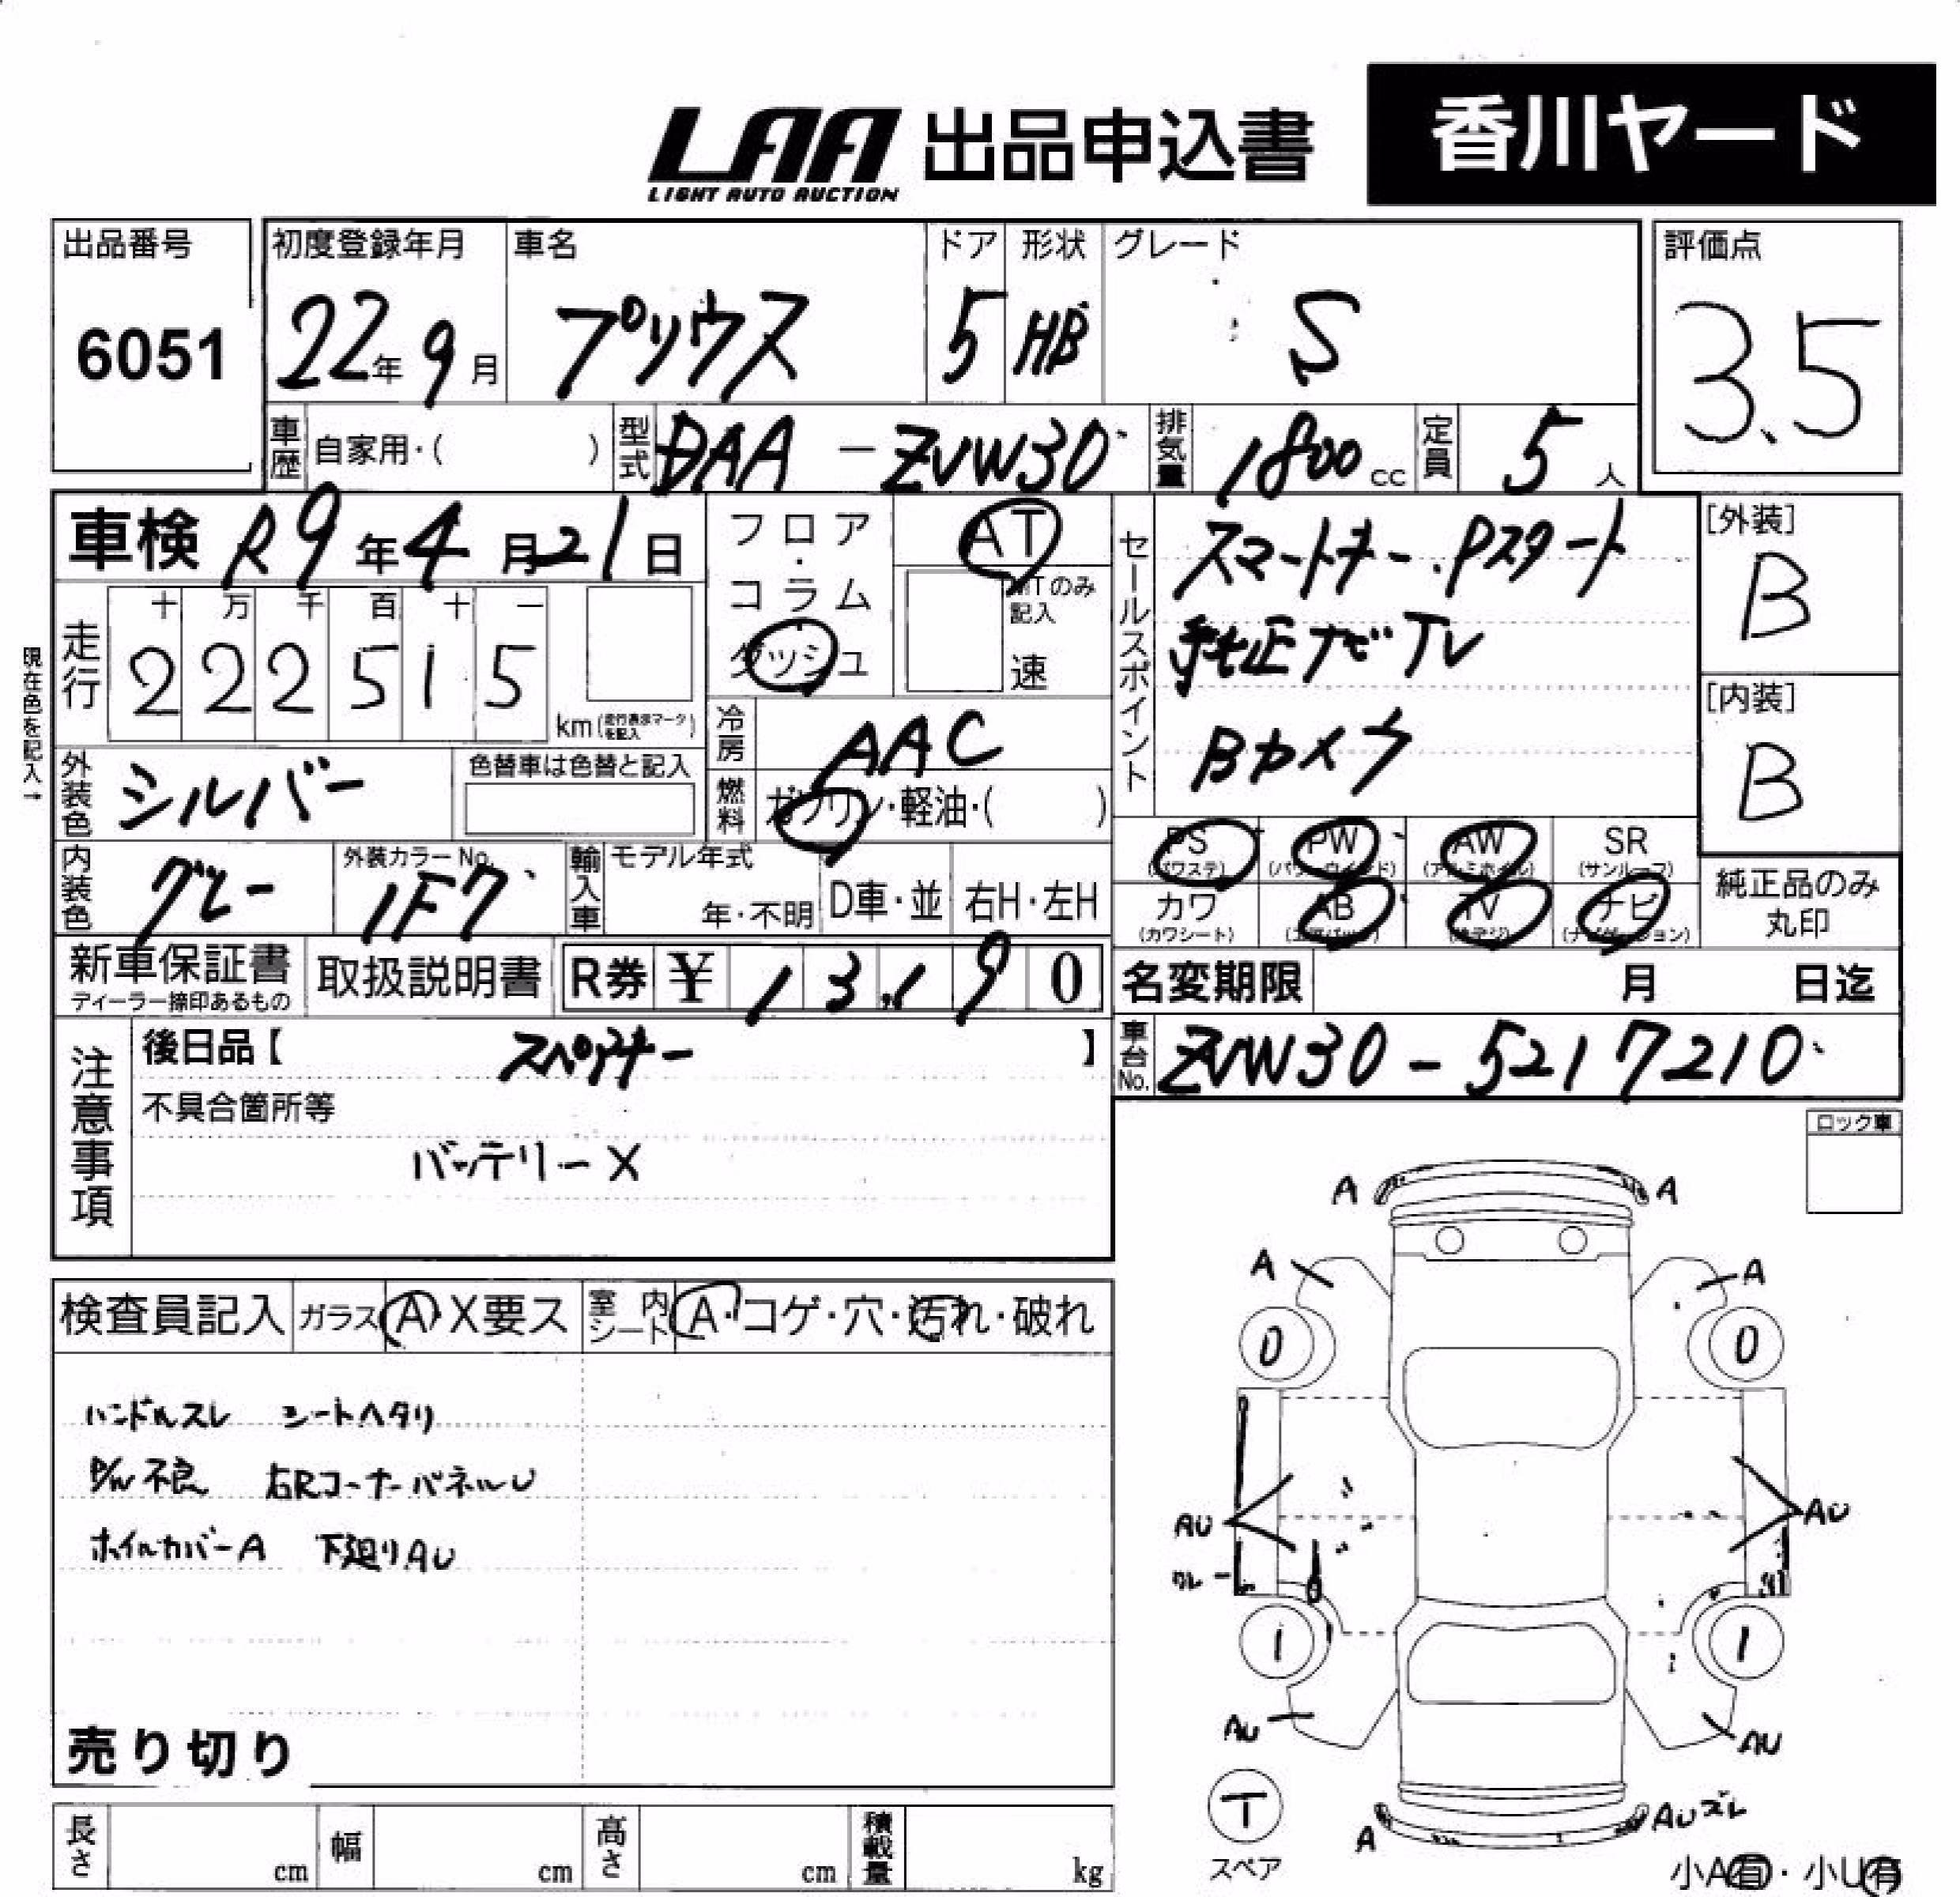 LAA 出品申込書 香川ヤード
LIGHT AUTO AUCTION
出品番号 初度登録年月 車名 ドア 形状 グレード 評価点
6051 22年 9月 プリウス 5 HB S 3.5
車歴 自家用・( ) 型式 DAA-ZVW30 排気量 1800cc 定員 5人
車検 R9年4月21日
フロア・コラム ダッシュ
AT
MTのみ記入
速
セールスポイント
スマートキー.Pスタート
純正ナビTV
Bカメラ
[外装]
B
[内装]
B
現在色を記入→
走行 十 万 千 百 十 一
2 2 2 5 1 5 km(走行表示マークを記入)
冷房 AAC
燃料 ガソリン・軽油・( )
外装色 シルバー 色替車は色替と記入
内装色 グレー 外装カラーNo. 1F7 輸入車 モデル年式 年・不明 D車・並 右H・左H
PS (パワステ) PW (パワーウインド) AW (アルミホイル) SR (サンルーフ)
カワ (カワシート) AB (エアバッグ) TV (地デジ) ナビ (ナビゲーション)
純正品のみ
丸印
新車保証書 取扱説明書 R券 ¥ 13,190
ディーラー捺印あるもの
名変期限 月 日迄
車台No. ZVW30-5217210
注意事項
後日品【 スペアキー 】
不具合箇所等
バッテリーX
ロック車
検査員記入 ガラス A・X要ス 室内シート A・コゲ・穴・汚れ・破れ
ハンドルスレ シートヘタリ
P/W不良 右RコーナーパネルU
ホイルカバーA 下廻りAU
売り切り
A A
A A
0 0
AU AU
クレー
1 1
AU AU
T
スペア
A AUズレ
小A有・小U有
長さ cm 幅 cm 高さ cm 積載量 kg